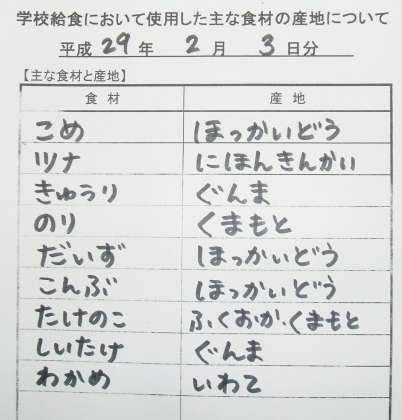 学校給食において使用した主な食材の産地について
平成 29 年 2 月 3 日分
【主な食材と産地】
食材 産地
こめ ほっかいどう
ツナ にほんきんかい
きゅうり ぐんま
のり くまもと
だいず ほっかいどう
こんぶ ほっかいどう
たけのこ ふくおか、くまもと
しいたけ ぐんま
わかめ いわて